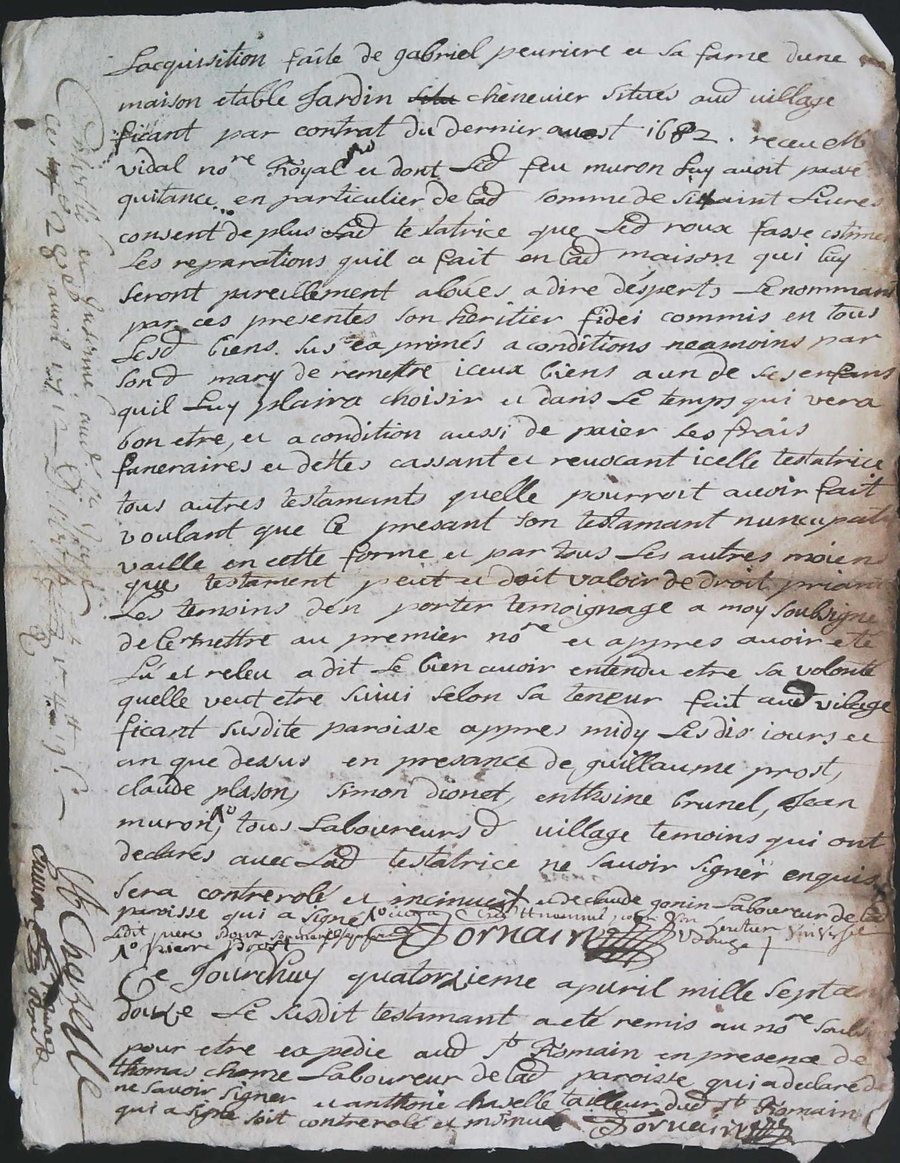 Lacquisition faite de gabriel peuriere et sa fame dune
maison etable Jardin chenevier situés aud village
ficant par contrat du dernier auost 1682. receu Me
vidal nore Royal et dont Led feu muron Luy avoit passé
quitance en particulier de Lad somme de Livres
consent de plus Lad testatrice que Led roux fasse estimer
Les reparations quil a fait en Lad maison qui luy
seront pareillement alouées a dire desperts Le nommant
par ces presentes son heritier fidei commis en tous
Lesd biens sus exprimés a conditions neamoins par
sond mary de remettre iceux biens a un de ses enfans
quil Luy plaira choisir et dans Le temps qui vera
bon etre, et a condition aussi de paier Les frais
funeraires et dettes cassant et revocant icelle testatrice
tous autres testamants quelle pourroit avoir fait
voulant que le presant son testamant nuncupatif
vaille en cette forme et par tous Les autres moiens
que testament peut et doit valoir de droit priant
Les temoins den porter temoignage a moy soubsigne
de Le remettre au premier nore et appres avoir eté
Lu et releu a dit Le bien avoir entendu etre sa volonté
quelle veut etre suivi selon sa teneur fait aud village
ficant susdite paroisse appres midy Lesdis iours et
an que dessus en presance de guillaume prost,
claude plason, simon dionet, enthoine brunel, Jean
muron, tous Laboureurs d village temoins qui ont
declarés avec Lad testatrice ne savoir signer enquis
sera controrolé et incinué et de claude gonin Laboureur de Lad
paroisse qui a signé
pierre
Fornain
Ce Jourdhuy quatorzieme apuril mille septcen
douze Le susdit testamant a eté remis au nore soubs
pour etre expedié aud St Romain en presence de
thomas chome Laboureur de Lad paroisse qui a declare de
ne savoir signer et anthoine chaselle tailleur dud St Romain
qui a signé soit controrolé et insinué Fornain
ce 28 avril 1712
Chaselle